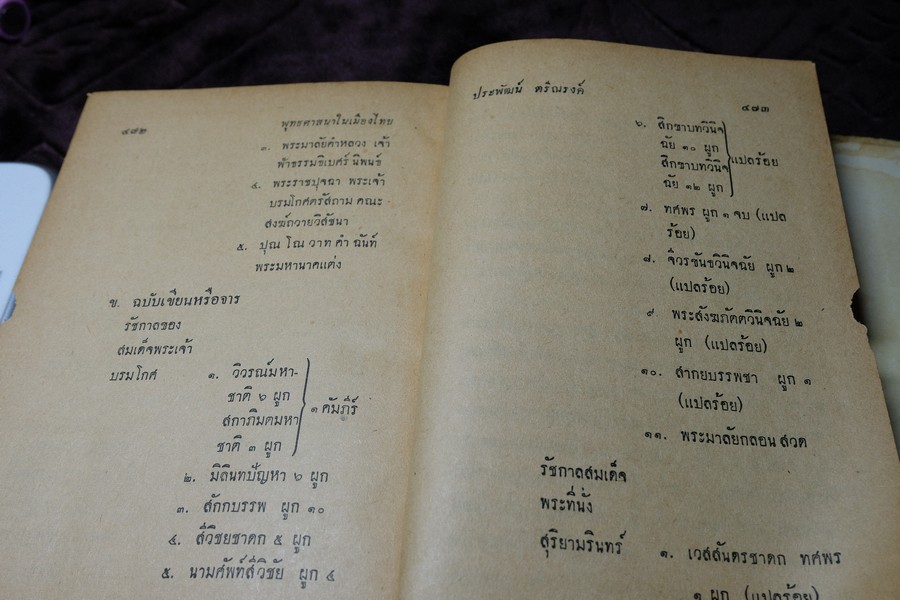 ๔๗๒
พุทธศาสนาในเมืองไทย
๓. พระมาลัยคำหลวง เจ้า
ฟ้าธรรมธิเบศร์ นิพนธ์
๔. พระราชปุจฉา พระเจ้า
บรมโกศตรัสถาม คณะ
สงฆ์ถวายวิสัชนา
๕. ปุณ โณ วาท คำ ฉันท์
พระมหานาคแต่ง
ข. ฉบับเขียนหรือจาร
รัชกาลของ
สมเด็จพระเจ้า
บรมโกศ ๑. วิวรณ์มหา-
ชาติ ๖ ผูก
สกาภิมตมหา
ชาติ ๓ ผูก
๑ คัมภีร์
๒. มิลินทปัญหา ๖ ผูก
๓. สักกบรรพ ผูก ๑๐
๔. สีวิชยชาดก ๕ ผูก
๕. นามศัพท์สีวิชัย ผูก ๔
ประพัฒน์ ตริณรงค์
๔๗๓
๖. สิกขาบทวินิจ
ฉัย ๑๐ ผูก
สิกขาบทวินิจ
ฉัย ๑๒ ผูก
แปลร้อย
๗. ทศพร ผูก ๑ จบ (แปล
ร้อย)
๘. จีวรขันธวินิจฉัย ผูก ๒
(แปลร้อย)
๙ พระสังฆภัตตวินิจฉัย ๒
ผูก (แปลร้อย)
๑๐. สากยบรรพชา ผูก ๑
(แปลร้อย)
๑๑. พระมาลัยกลอน สวด
รัชกาลสมเด็จ
พระที่นั่ง
สุริยามรินทร์
๑. เวสสันดรชาดก ทศพร
๑ ผูก (แปลร้อย)